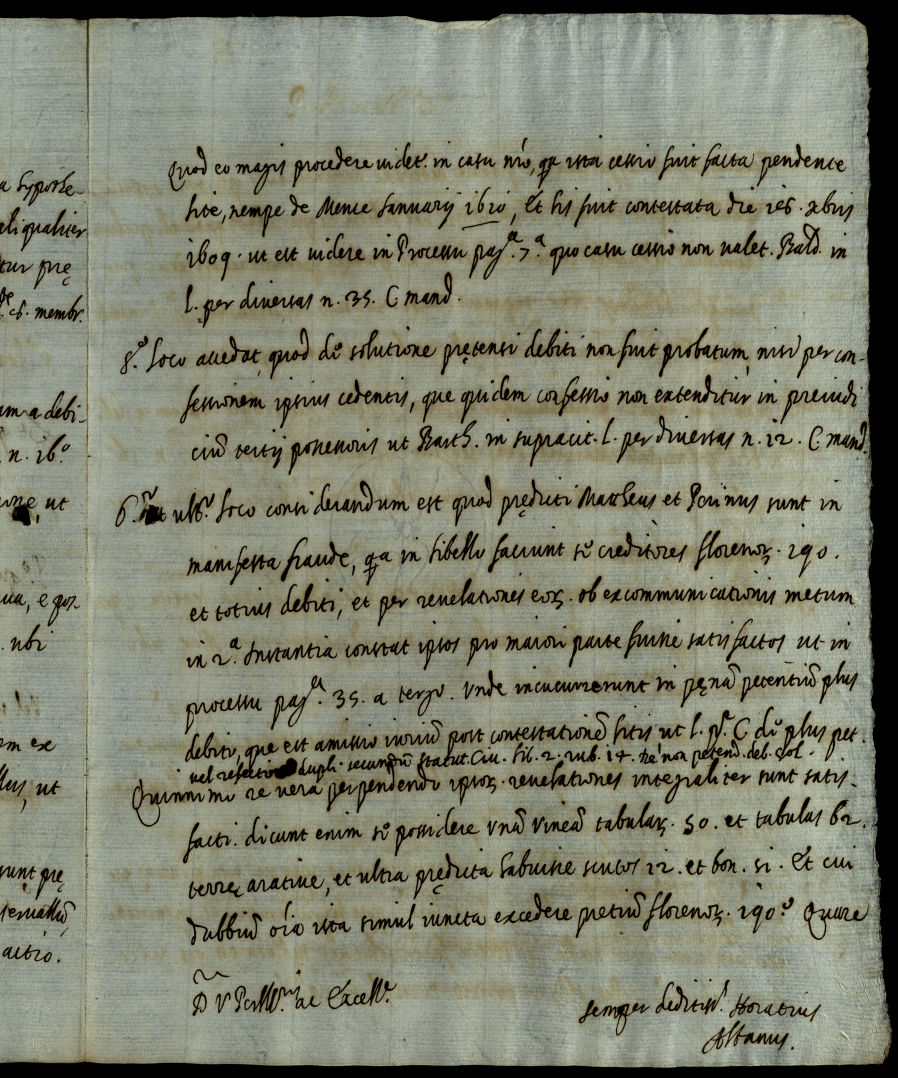 a hypothe-
aliqualiter
tur prę
c. 6. membr.
um a debi-
n. 16°
ione, ut
ubi
em ex
ut
sunt prę
actio.
Quod eo magis procedere videt.r in casu nr̃o, qa ista cessio fuit facta pendente
lite, nempe de Mense Januarij 1610, Et lis fuit contestata die 16. xbris
1609. ut est videre in Processu pag.a 7.a quo casu cessio non valet. Bald. in
l. per diversas n. 35. C mand.
5.° Loco accedat, quod de solutione prętensi debiti non fuit probatum, nisi per con-
fessionem ipsius cedentis, que quidem confessio non extenditur in preiudi
ciũ tertij possessoris ut Barth. in supracit. l. per diversas n. 12. C mand.
6.° et ult.° Loco considerandum est quod prędicti Mattheus et Perinus sunt in
manifesta fraude, qa in libello faciunt se creditores florenoꝝ. 190.
et totius debiti, et per revelationes eoꝝ. ob excommunicationis metum
in 2.a Instantia constat ipsos pro maiori parte fuisse satisfactos ut in
processu pag.a 35. a tergo. Unde incucurrerunt in pęnã petentiũ plus
debito, que est amissio iuriũ post contestationẽ litis ut l. p.a C de plus pet.
vel refectio dupli secundũ statut. Civ. lib. 2. rub. 14. de non petend. deb. sol.
Quinnimo re vera perpendendo ipsoꝝ. revelationes integraliter sunt satis-
facti. dicunt enim se possidere unã vineã tabulaꝝ. 50. et tabulas 62.
terrę arative, et ultra prędicta habuisse scutos 12. et bon. 51. Et cui
dubbiũ oĩa ista simul iuncta excedere pretiũ florenoꝝ. 190.° Quare
D V Perill.ri ac Excell.e
semper deditiss. Horatius
Altanus.